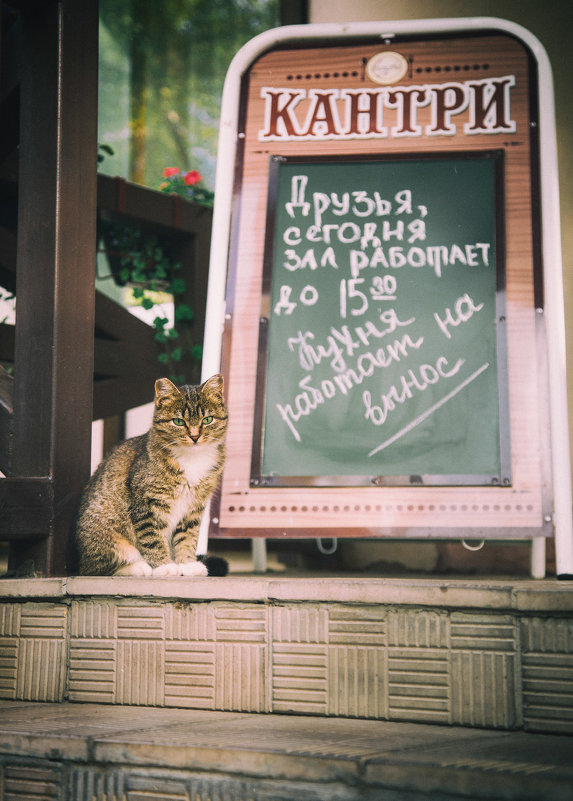 КАНТРИ
Друзья,
сегодня
зал работает
до 15 30
Кухня
работает на
вынос